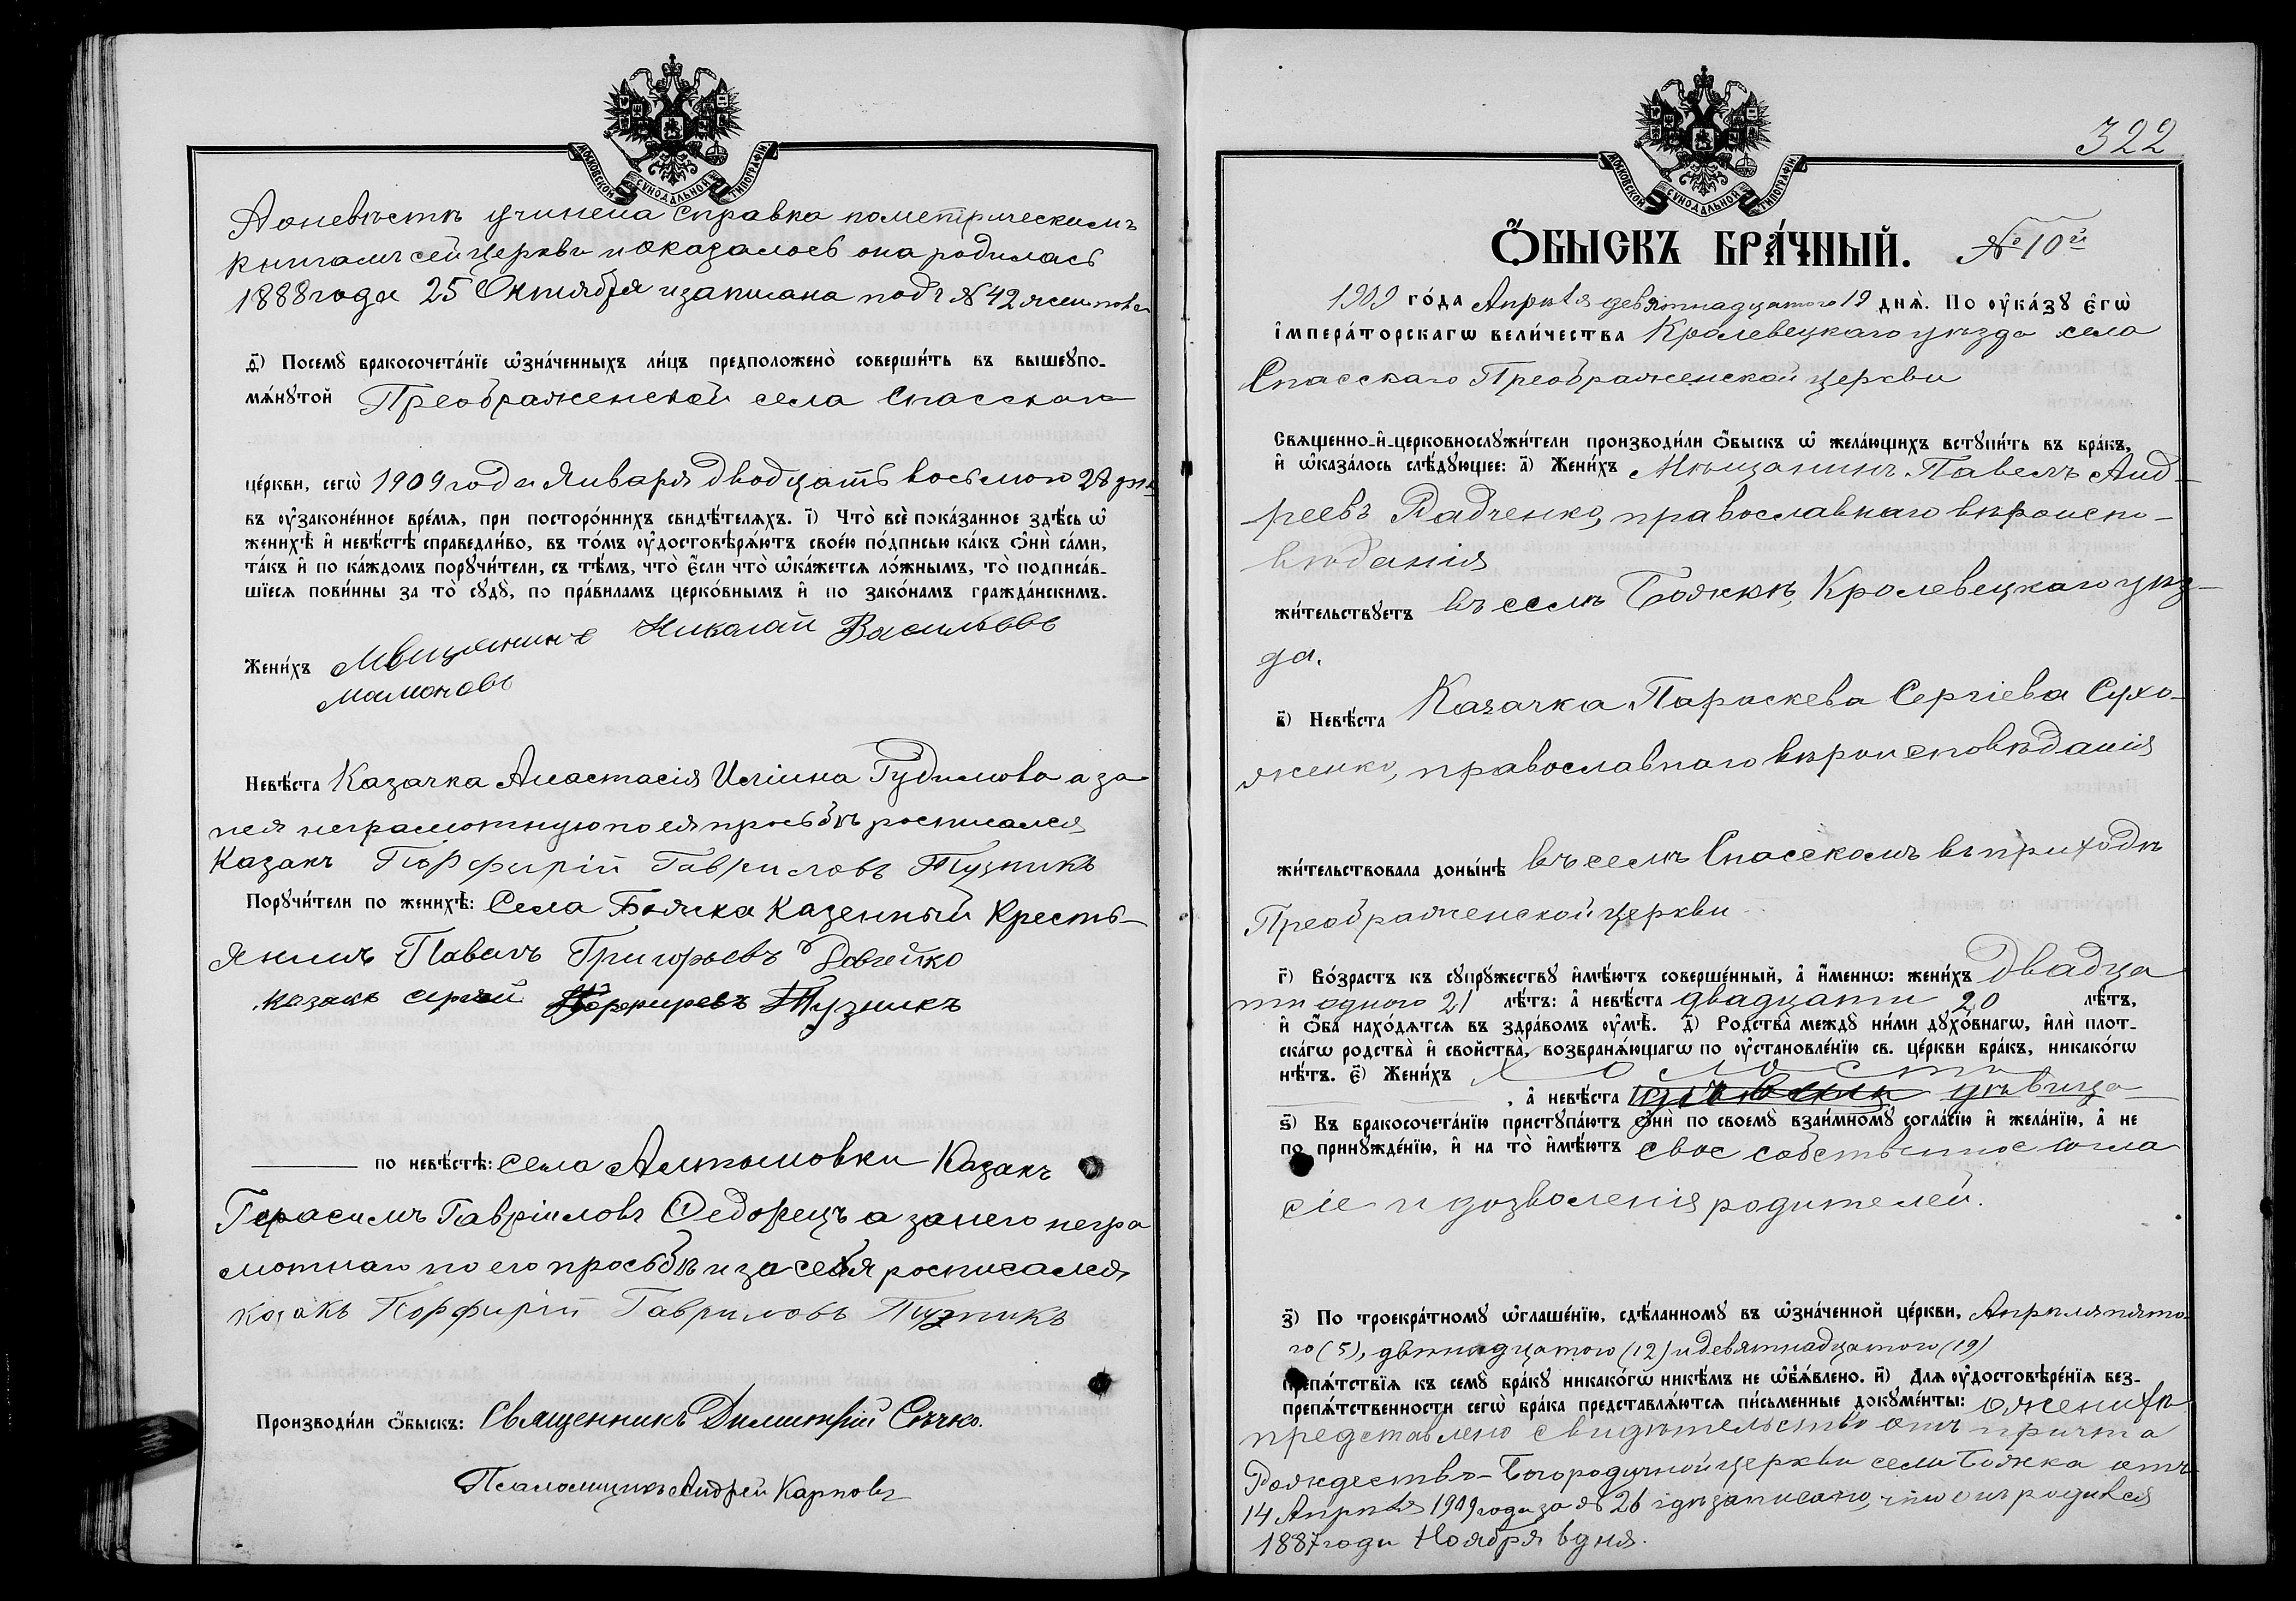 МОСКОВСКОЙ СѴНОДАЛЬНОЙ ТИПОГРАФІИ
А о невѣстѣ учинена справка по метрическимъ
книгамъ сей церкви и оказалось она родилась
1888 года 25 Октября и записана подъ № 42 женск. пола
д҃) Посемꙋ бракосочета́нїе ѡ҆зна́ченныхъ ли́цъ предположено̀ соверши́ть въ вышеꙋпо-
мѧ́нꙋтой Преображенской села Спасскаго
це́ркви, сегѡ̀ 1909 года Января двадцать восьмого 28 дня
въ ᲂу҆законе́нное вре́мѧ, при посторо́ннихъ свидѣ́телѧхъ. і҃) Что̀ всѐ пока́занное здѣ́сь ѡ҆
женихѣ̀ и҆ невѣ́стѣ справедли́во, въ то́мъ ᲂу҆достовѣрѧ́ютъ свое́ю по́дписью ка́къ ѻ҆нѝ са́ми,
та́къ и҆ по ка́ждомъ порꙋчи́тели, съ тѣ́мъ, что̀ є҆́сли что̀ ѡ҆ка́жетсѧ ло́жнымъ, то̀ подписа́в-
шїесѧ пови́нны за то̀ сꙋдꙋ̀, по пра́виламъ церко́внымъ и҆ по зако́намъ гражда́нскимъ.
Жени́хъ Мещянинъ Николай Васильевъ
Мамоновъ
Невѣ́ста Казачка Анастасія Иліина Гудимова а за
нея неграмотную по ея просьбѣ росписался
Казакъ Порфирій Гавриловъ Пузникъ
Порꙋчи́тели по женихѣ̀: Села Божка Казенный Кресть-
янинъ Павелъ Григорьевъ
казакъ Сергѣй Порфиревъ Пузникъ
по невѣ́стѣ: села Алтыновки Казакъ
Герасимъ Гавріиловъ Ѳедорецъ а за него негра
мотнаго по его просьбѣ и за себя росписался
козакъ Порфирій Гавриловъ Пузникъ
Производи́ли ѻ҆́быскъ: Священникъ Димитрій Сѣчко.
Псаломщикъ Андрей Карповъ
322
МОСКОВСКОЙ СѴНОДАЛЬНОЙ ТИПОГРАФІИ
Ѻ҆́БЫСКЪ БРА́ЧНЫЙ. № 10й
1909 го́да Апрѣля девятнадцатого 19 днѧ̀. По ᲂу҆ка́зꙋ є҆гѡ̀
і҆мпера́торскагѡ вели́чества Кролевецкаго уѣзда села
Спасскаго Преображенской церкви
Свѧщенно-и҆-церковнослꙋжи́тели производи́ли ѻ҆́быскъ ѡ҆ жела́ющихъ встꙋпи́ть въ бра́къ,
и҆ ѡ҆каза́лось слѣ́дꙋющее: а҃) Жени́хъ Мѣщанинъ Павелъ Анд-
реевъ Радченко, православнаго вѣроиспо-
вѣданія
жи́тельствꙋетъ въ селѣ Божкѣ, Кролевецкаго уѣз-
да.
в҃) Невѣ́ста Казачка Параскева Сергіева Сухо-
женко, православнаго вѣроисповѣданія
жи́тельствовала доны́нѣ въ селѣ Спасскомъ въ приходѣ
Преображенской церкви
г҃) Во́зрастъ къ сꙋпрꙋ́жествꙋ и҆мѣ́ютъ соверше́нный, а҆ и҆́меннѡ: жени́хъ двадца
ти одного 21 лѣ́тъ: а҆ невѣ́ста двадцати 20 лѣ́тъ,
и҆ ѻ҆́ба нахо́дѧтсѧ въ здра́вомъ ᲂу҆мѣ̀. д҃) Родства̀ междꙋ̀ ни́ми дꙋхо́внагѡ, и҆лѝ плот-
ска́гѡ родства̀ и҆ свойства̀, возбранѧ́ющагѡ по ᲂу҆становле́нїю св. це́ркви бра́къ, никако́гѡ
нѣ́тъ. є҃) Жени́хъ холостъ
, а҆ невѣ́ста дѣвица
ѕ҃) Къ бракосочета́нїю пристꙋпа́ютъ ѻ҆нѝ по своемꙋ̀ взаи́мномꙋ согла́сїю и҆ жела́нїю, а҆ не
по принꙋжде́нїю, и҆ на то̀ и҆мѣ́ютъ свое собственное согла
сіе и дозволенія родителей.
з҃) По троекра́тномꙋ ѡ҆глаше́нїю, сдѣ́ланномꙋ въ ѡ҆зна́ченной це́ркви, Апрѣля пято-
го (5), двѣнадцатого (12) и девятнадцатого (19)
препѧ́тствїѧ къ семꙋ̀ бра́кꙋ никако́гѡ никѣ́мъ не ѡ҆б̾ѧ́влено. и҃) Длѧ ᲂу҆достовѣре́нїѧ без-
препѧ́тственности сегѡ̀ бра́ка представлѧ́ютсѧ пи́сьменные докꙋме́нты: о женихѣ
представлено свидѣтельство отъ причта
Рождество-Богородичной церкви села Божка отъ
14 Апрѣля 1909 года за № 26 гдѣ записано, что онъ родился
1887 года Ноября 6 дня.